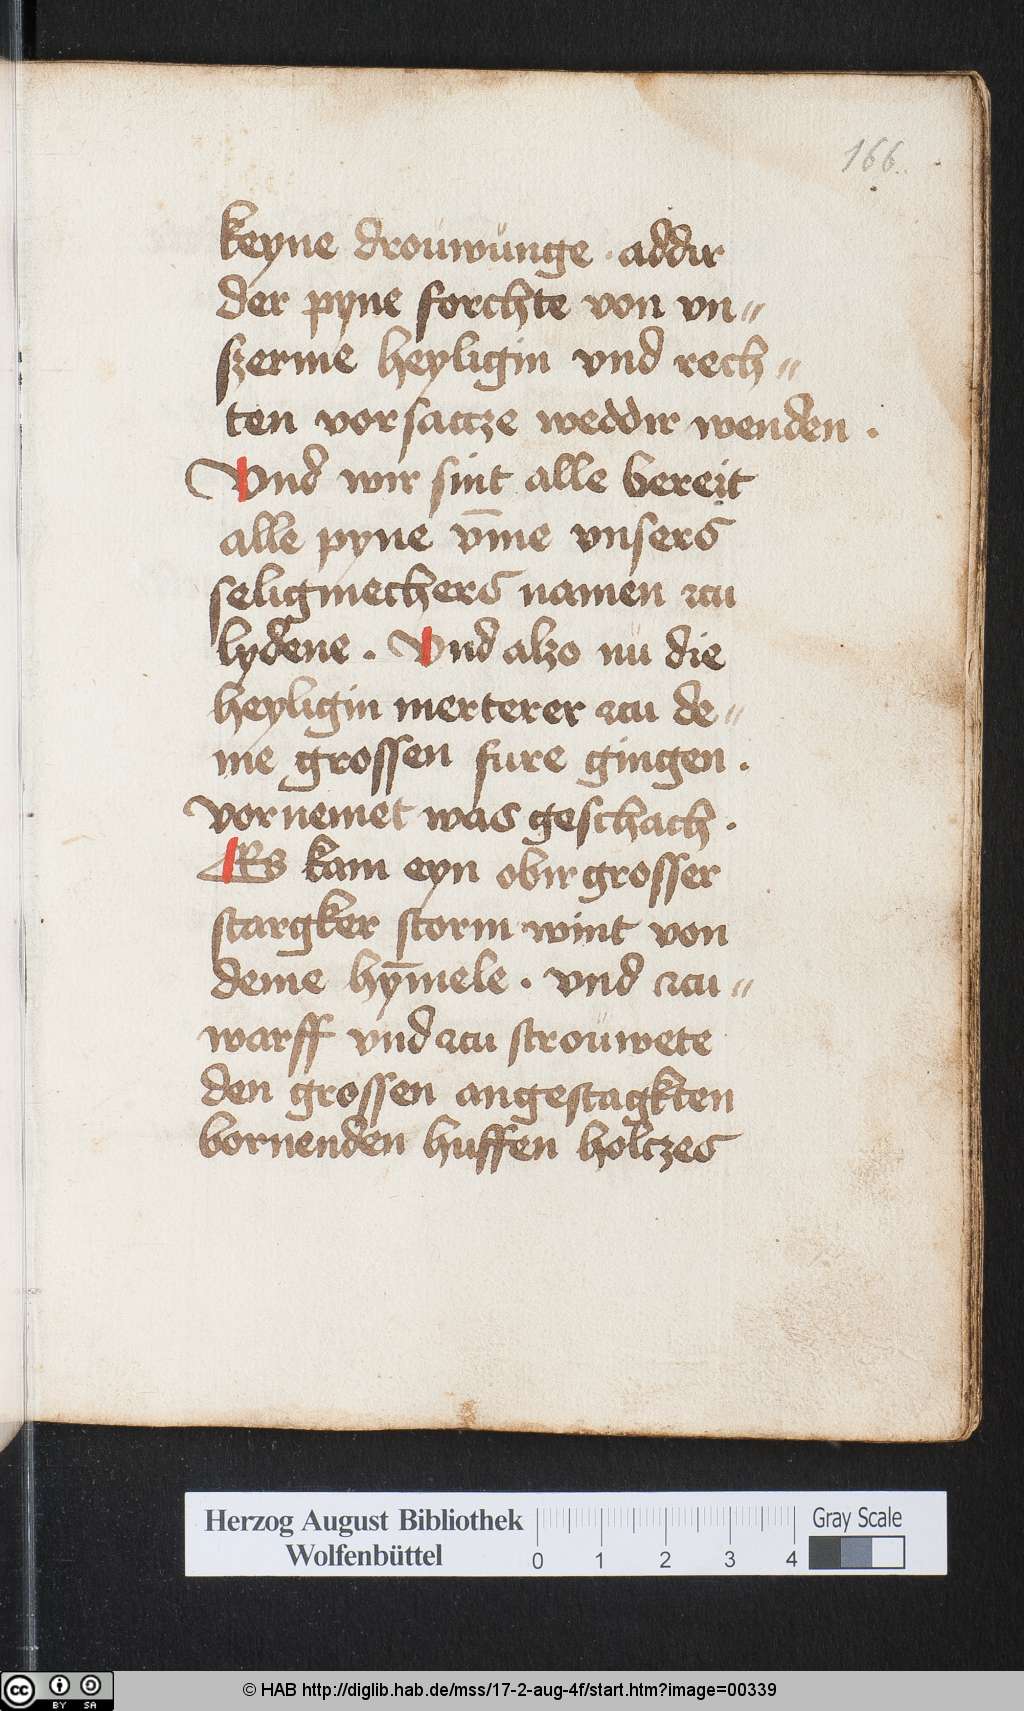 166
keyne drouwunge · addir
der pyne forchte von vn〃
szerme heyligin vnd rech〃
ten vorsattze weddir wenden .
Vnd wir sint alle bereit
alle pyne vm̄e vnsers
seligmechers namen zcu
lydene . Vnd alzo nu die
heyligin merterer zcu de〃
me grossen fure gingen .
vornemet was geschach .
Es kam eyn obir grosser
stargker storm wint von
deme hym̄ele . vnd zcu〃
warff vnd zcu strouwete
den grossen angestagkten
bornenden huffen holczes
Herzog August Bibliothek
Wolfenbüttel
0 1 2 3 4
Gray Scale
cc BY SA
© HAB http://diglib.hab.de/mss/17-2-aug-4f/start.htm?image=00339